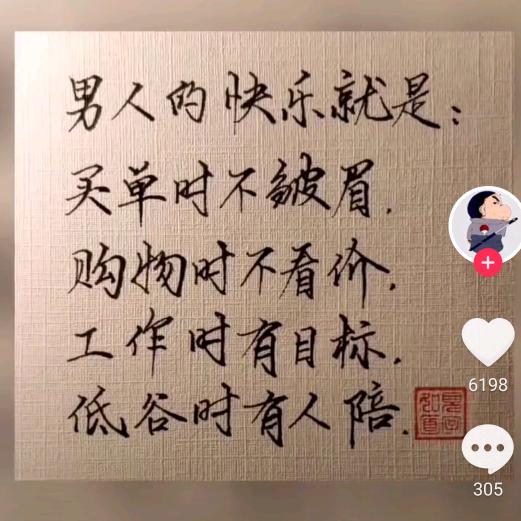 男人的快乐就是：
买单时不皱眉.
购物时不看价.
工作时有目标.
低谷时有人陪.
6198
305